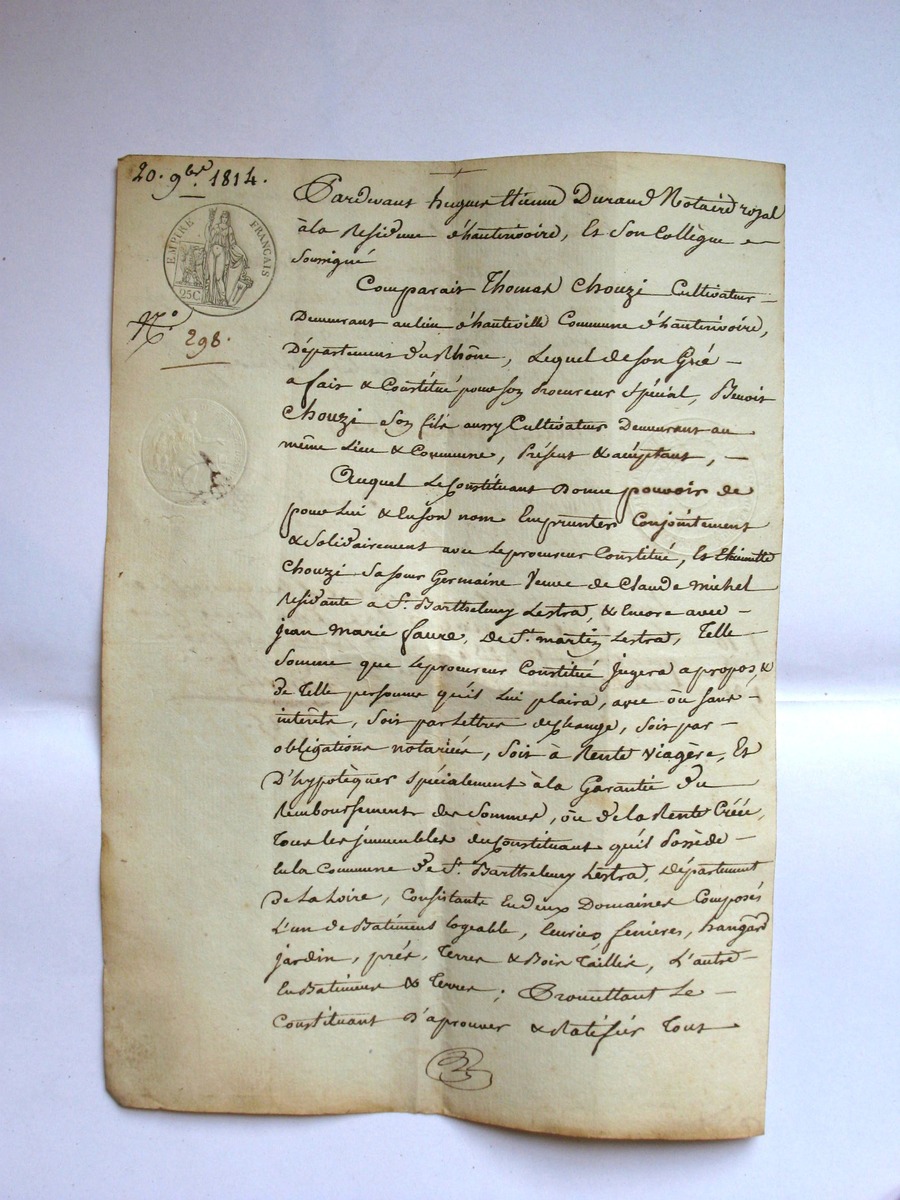 20. 9bre. 1814.
EMPIRE FRANÇAIS
25C.
N.o
298.
Pardevant hugues Etienne Durand Notaire royal
à la Residence d'hauterivoire, Et Son Collègue
Soussigné
Comparait Thomas Chouzi Cultivateur
Demeurant au lieu d'hauteville Commune d'hauterivoire,
Département du Rhône, Lequel de son Gré
a fait & Constitué pour son Procureur Spécial, Benoit
Chouzi son fils aussy Cultivateur Demeurant au
même Lieu & Commune, Présent & acceptant,
Auquel le Constituant Donne pouvoir de
pour Lui & En son nom Emprunter Conjointement
& Solidairement avec Le procureur Constitué, Et Etiennette
Chouzi Sa sœur Germaine Veuve de Claude Michel
Residante a St. Barthelemy Lestra, & Encore avec
jean marie faure, de St. martin Lestra, Telle
Somme que Le procureur Constitué jugera a propos, &
de Telle personne qu'il Lui plaira, avec ou sans
intérêts, Soit par Lettres de change, Soit par
obligations notariées, Soit à Rente Viagère, Et
D'hypotèquer Spécialement à la Garantie du
Remboursement des Sommes, ou de la Rente Créée,
Tous les immeubles du Constituant qu'il Possède
En la Commune de St. Barthelemy Lestra, Département
de La Loire, Consistants En deux Domaines Composés
L'un de Batiment logeable, Ecuries, fenières, hangard
jardin, prés, Terres & Bois Taillis, L'autre
En Batiments & Terres; Promettant Le
Constituant D'aprouver & Ratifier Tous